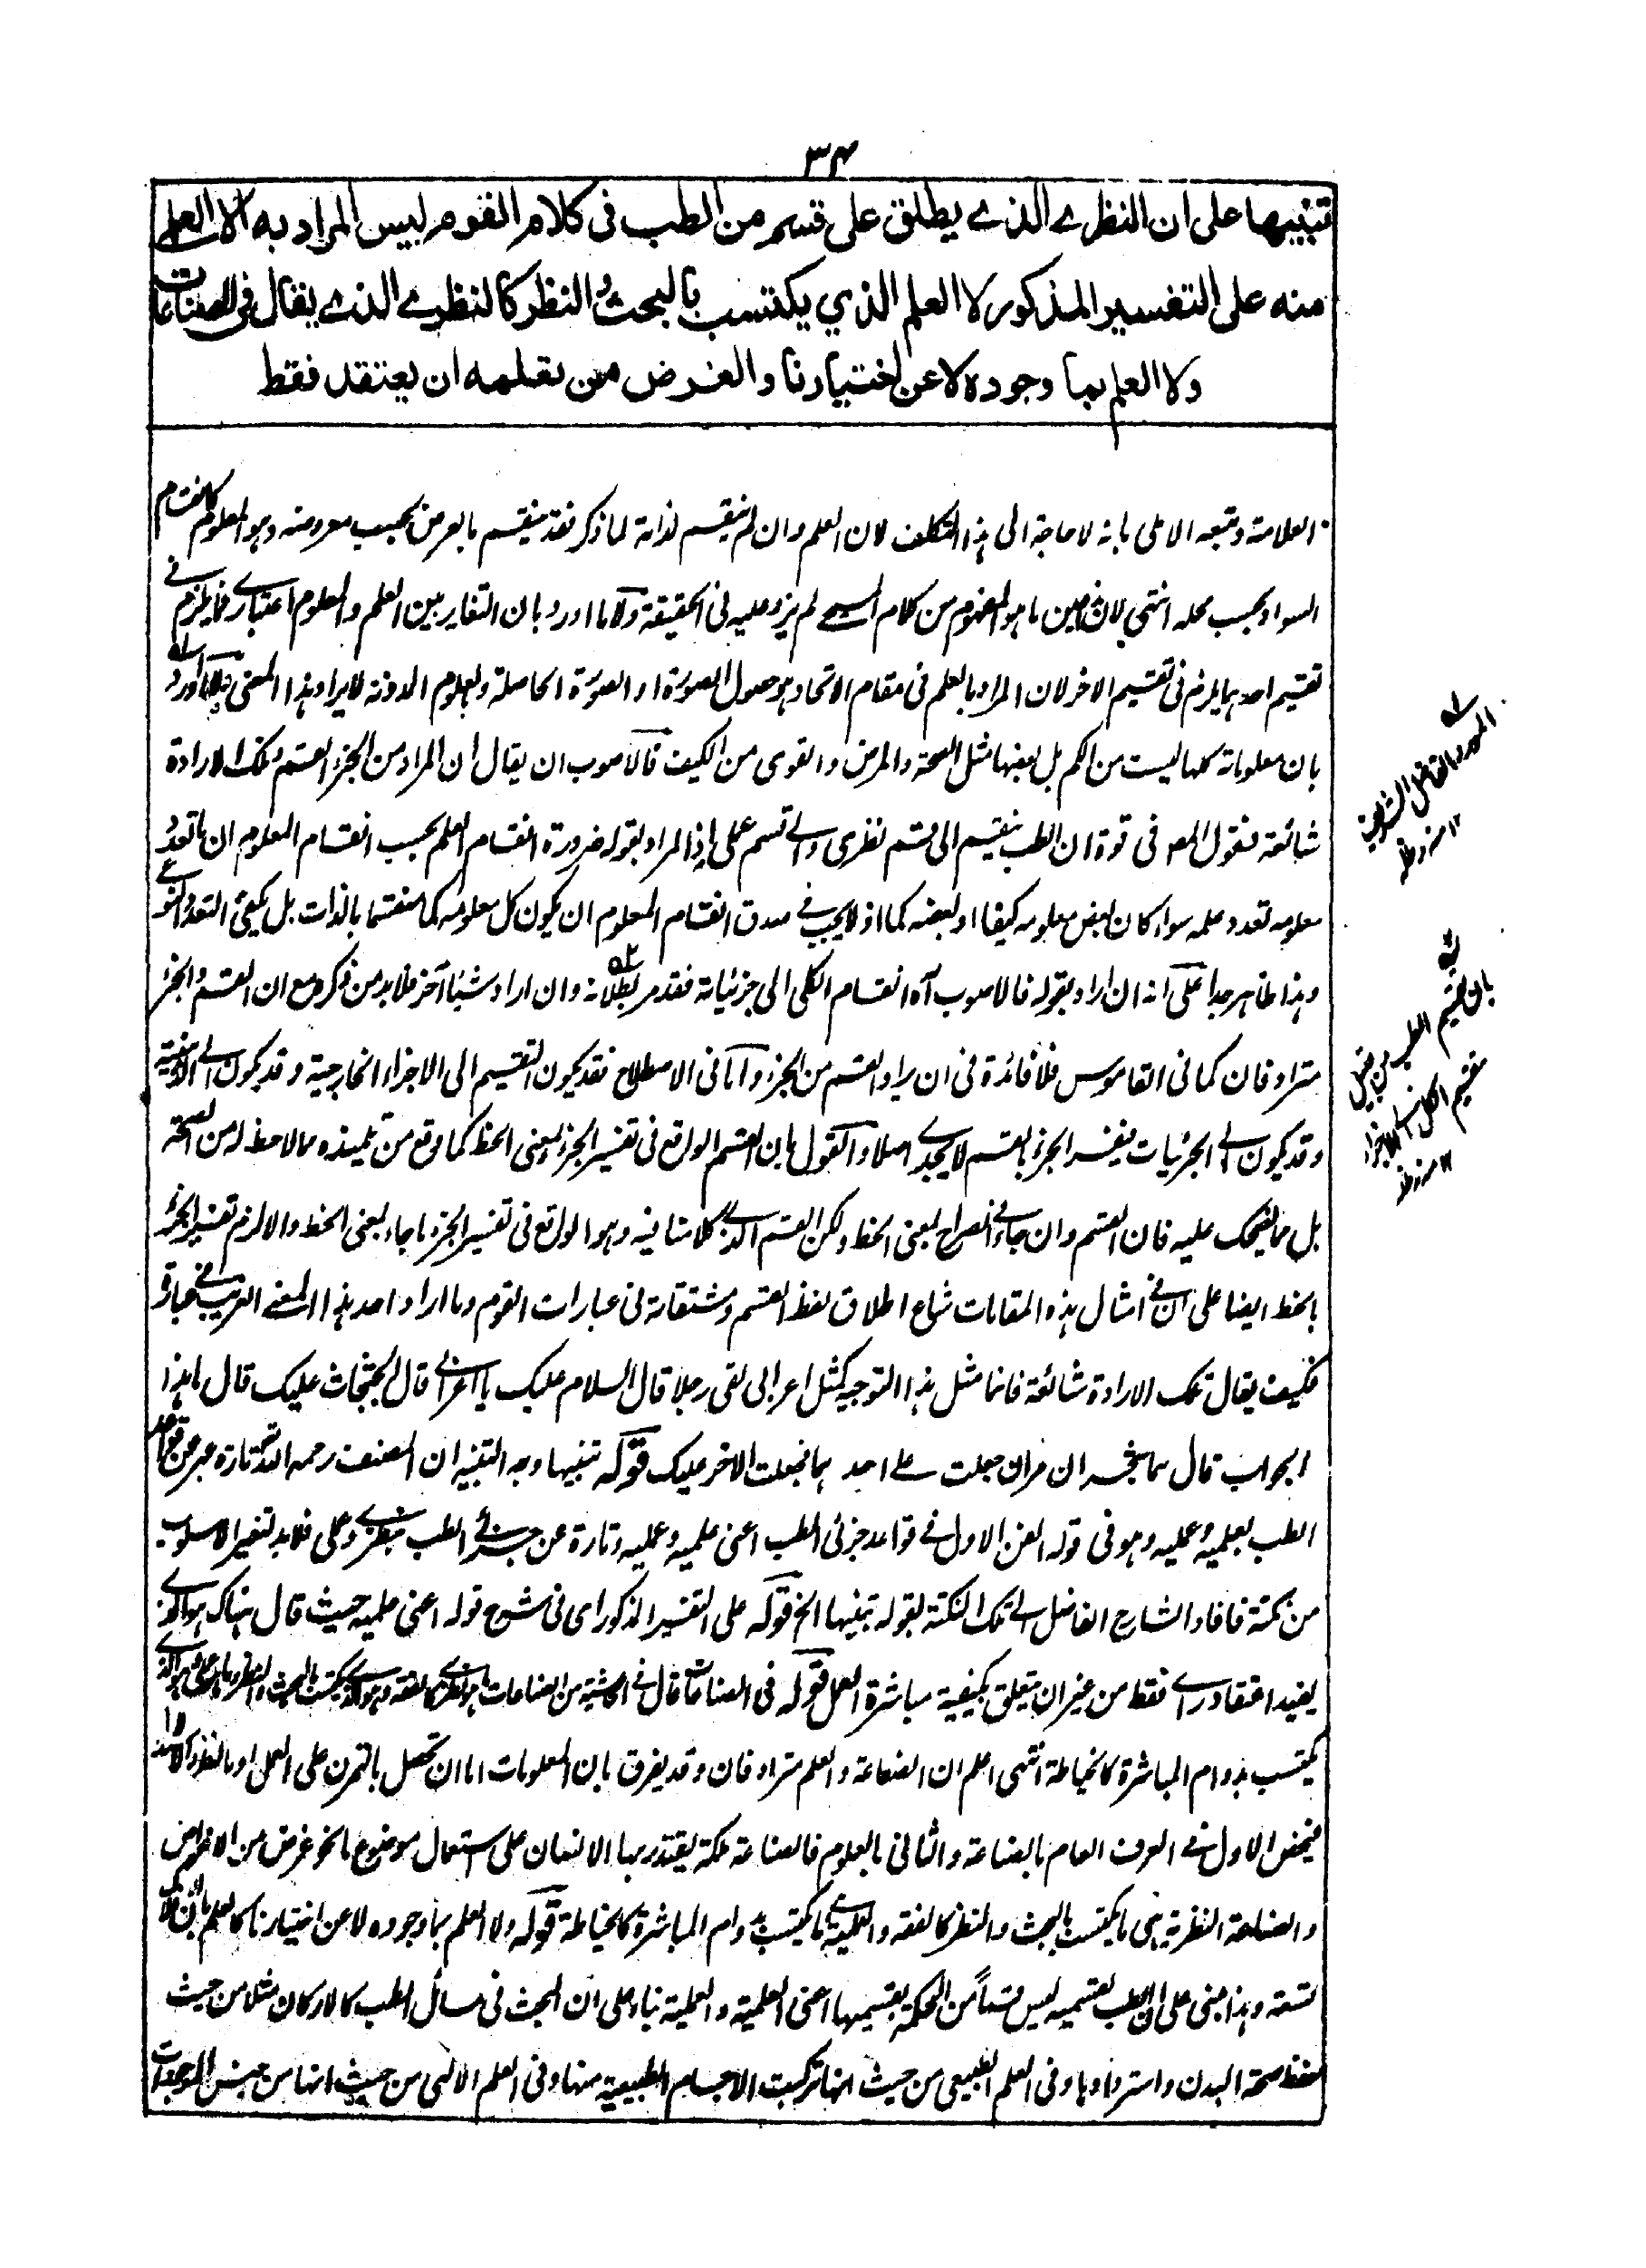 ٣٤
تنبيها على ان النظرے الذے يطلق على قسم من الطب فى كلام القوم ليس المراد به الا العلمے
منه على التفسير المذكور لا العلم الذي يكتسب بالبحث و النظر كالنظرے الذے يقال فى الصناعات
ولا العلم بما وجوده لا عن اختيارنا والغرض من تعلمه ان يعتقد فقط
العلامة وتبعه الاملى بانه لا حاجة الى هذا التكلف لان العلم وان لم ينقسم لذاته لما ذكر فقد ينقسم بالعرض بحسب معروضه وهو المعلوم كانقسام
السواد بحسب محله انتهى لانه عين ما هو المفهوم من كلام لم يزد عليه فى الحقيقة ولا ما اورد بان التغاير بين العلم والمعلوم اعتبارے فما يلزم فے
تقسيم احدهما يلزم فى تقسيم الاخر لان المراد بالعلم فى مقام الاتحاد هو حصول الصورة او الصورة الحاصلة والعلوم المدونة لا يراد بها هذا المعنى ولا ما اورد
بان معلوماته كلها ليست من الكم بل بعضها مثل الصحة والمرض والقوى من الكيف فالاصوب ان يقال ان المراد من الجزء القسم وتلك الارادة
شائعة فقول المص فى قوة ان الطب ينقسم الى قسم نظرى والے قسم عملى اذ المراد بقوله ضرورة انقسام العلم بحسب انقسام المعلوم ان ما تعدد
معلومه تعدد علمه سواء كان بعض معلومه كيفا او بعضه كما اذ لا يجب فے صدق انقسام المعلوم ان يكون كل معلومه كما منقسما بالذات بل يكفى التعدد النوعے
وهذا ظاهر جدا على انه ان اراد بقوله فالاصوب آه انقسام الكلى الى جزئياته فقد مر بطلانه وان اراد شيئا آخر فلا بد من ذكره مع ان القسم والجزء
مترادفان كما فى القاموس فلا فائدة فى ان يراد القسم من الجزء واما فى الاصطلاح فقد يكون التقسيم الى الاجزاء الخارجية وقد يكون الے الذهنية
وقد يكون الے الجزئيات فيفسر الجزء بالقسم لا يجدے اصلا والقول بان القسم الواقع فى تفسير الجزء بمعنى الحظ كما وقع من تلميذه مما لا حظ له من الصحة
بل مما يضحك عليه فان القسم وان جاء فے الصراح بمعنى الحظ ولكن القسم الذے كلامنا فيه وهو الواقع فى تفسير الجزء ما جاء بمعنى الحظ والا لزم تفسير الجزء
بالحظ ايضا على ان فے امثال هذه المقامات شاع اطلاق لفظ القسم ومشتقاته فى عبارات القوم وما اراد احد هذا المعنے الغريب فے عبارة
فكيف يقال تلك الارادة شائعة فانما مثل هذا التوجيه كمثل اعرابى لقى رجلا قال السلام عليك يا اعرابے قال الجثجاث عليك قال ما هذا
الجواب قال هما شجران مران جعلت علے احدهما فجعلت الاخر عليك قوله تنبيها وجه التنبيه ان المصنف رحمه الله تارة عبر عن قواعد
الطب بعلميه وعمليه وهو فى قوله الفن الاول فے قواعد جزئى الطب اعنى علميه وعمليه وتارة عن جزئے الطب بنظرے وعملى فلا بد لتغير الاسلوب
من نكتة فافاد الشارح الفاضل الے تلك النكتة بقوله تنبيها الخ قوله على التفسير المذكور اى فى شرح قوله اعنى علميه حيث قال هناك هو الذے
يفيد اعتقاد رأے فقط من غير ان يتعلق بكيفية مباشرة العمل قوله فى الصناعات قال فے الحاشية من الصناعات ما هو نظرے كالفقه وهو الذے يكتسب بالبحث والنظر وما هو عملى وهو الذے
يكتسب بدوام المباشرة كالخياطة انتهى اعلم ان الصناعة والعلم مترادفان وقد يفرق بان المعلومات اما ان تحصل بالتمرن على العمل او بالنظر والاستدلال
فيخص الاول فے العرف العام بالصناعة والثانى بالعلوم فالصناعة ملكة يقتدر بها الانسان على استعمال موضوع ما نحو غرض من الاغراض
والصناعة النظرية هى ما يكتسب بالبحث والنظر كالفقه والعملية ما يكتسب بدوام المباشرة كالخياطة قوله ولا العلم بما وجوده لا عن اختيارنا كالعلم بان الافلاك
تسعة وهذا مبنى على ان الطب بقسميه ليس قسماً من الحكمة بقسيمها اعنى العلمية والعملية بناء على ان البحث فى مسائل الطب كالاركان مثلا من حيث
حفظ صحة البدن واستردادها وفى العلم الطبيعى من حيث انها تركبت الاجسام الطبيعية منها وفى العلم الالهى من حيث انها من جنس الموجودات
المورد الفاضل الشريف
١٢ منه
بان تقسيم الطب من قبيل
تقسيم الكل الے الاجزاء
١٢ منه